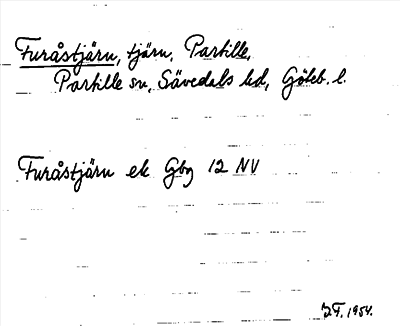 Furåstjärn, tjärn, Partille,
Partille sn, Sävedals hd, Göteb. l.
Furåstjärn ek Gbg 12 NV
J.F. 1954.